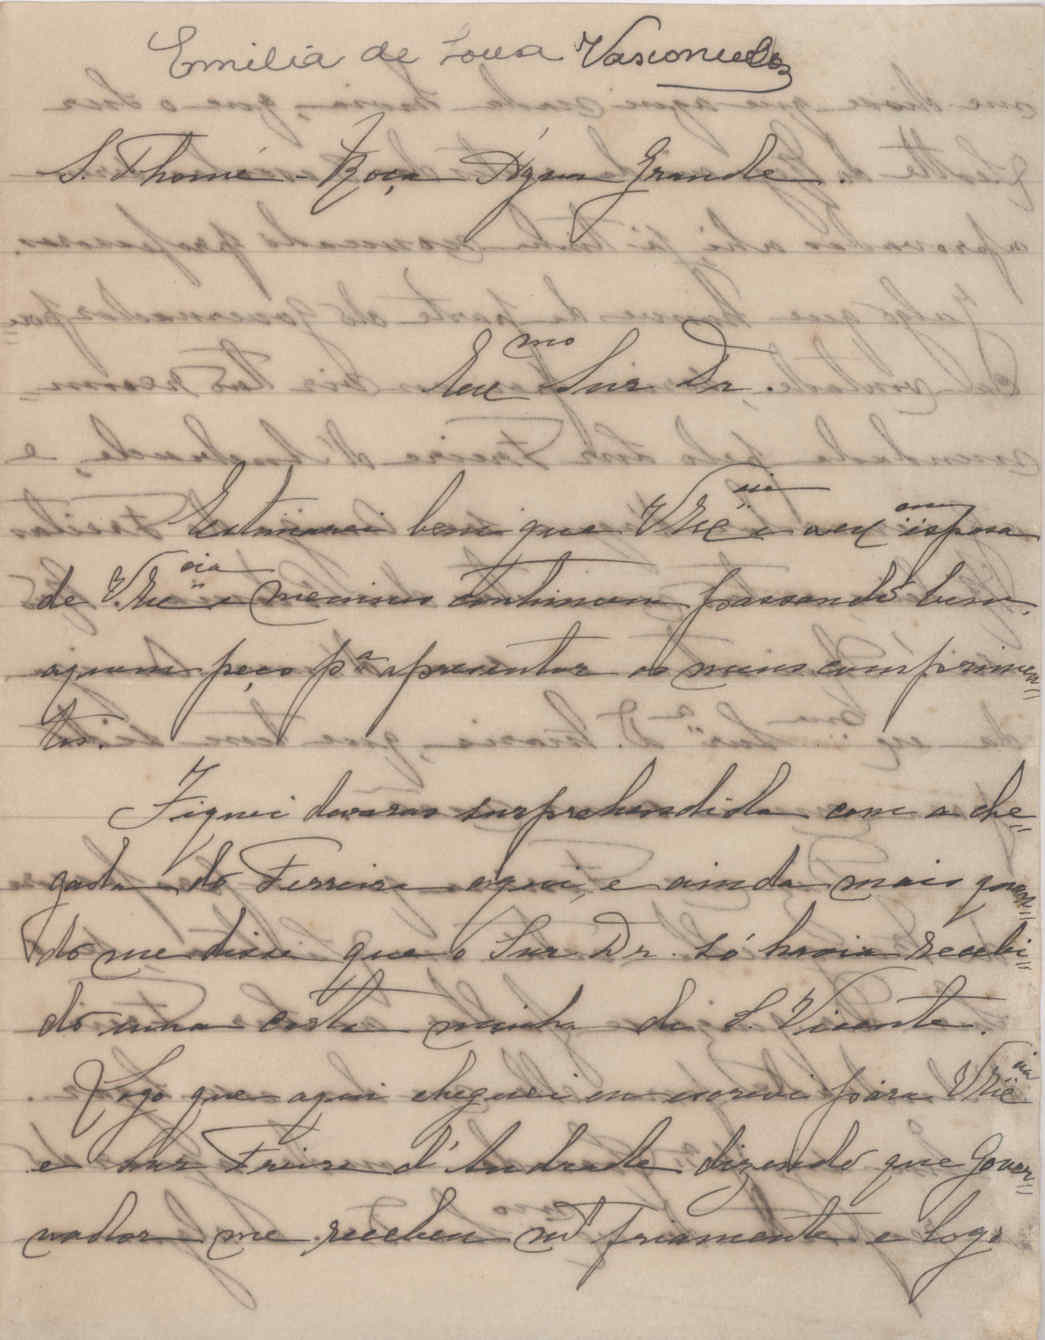 Emilia de Sousa Vasconcellos
S. Thomé - Roça Agua Grande.
Exmo Snr Dr.
Estimarei bem que V. Excia e a Exma esposa
de V. Excia e meninos continuem passando bem,
a quem peço pa apresentar os meus comprimen=
tos.
Fiquei deveras surprehendida com a che=
gada do Ferreira aqui, e ainda mais quan=
do me disse que o Snr Dr. só havia recebi=
do uma carta minha de S. Vicente.
Logo que aqui cheguei eu escrevi para V. Excia
e Snr Freire d'Andrade, dizendo que Gover=
nador me recebeu mto friamente e logo